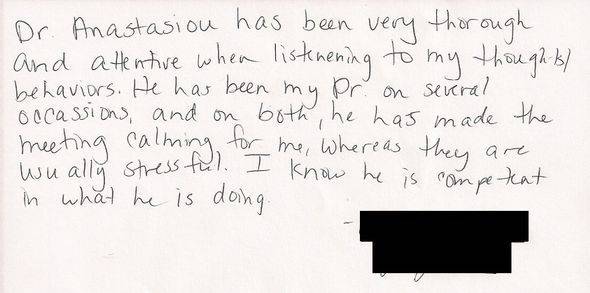 Dr. Anastasiou has been very thorough
and attentive when listnening to my thoughts/
behaviors. He has been my Dr. on several
occassions, and on both, he has made the
meeting calming for me, whereas they are
usually stressful. I know he is competent
in what he is doing.
-